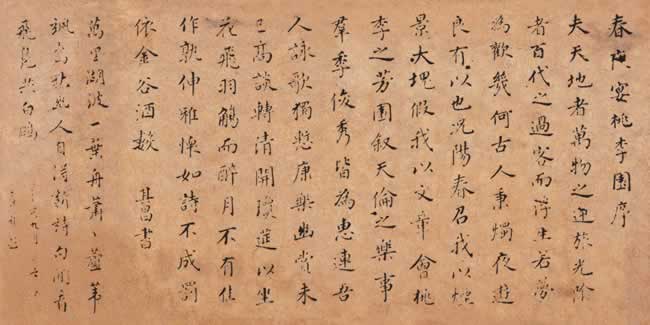 春夜宴桃李園序
夫天地者萬物之逆旅光陰
者百代之過客而浮生若夢
為歡幾何古人秉燭夜遊
良有以也況陽春召我以煙
景大塊假我以文章會桃
李之芳園叙天倫之樂事
羣季俊秀皆為惠連吾
人詠歌獨慙康樂幽賞未
已高談轉清開瓊筵以坐
花飛羽觴而醉月不有佳
作孰伸雅懷如詩不成罰
依金谷酒數 其昌書
萬里湖波一葉舟蕭〻蘆葦
颯高秋此人自得新詩句閒看
飛鳧與白鷗